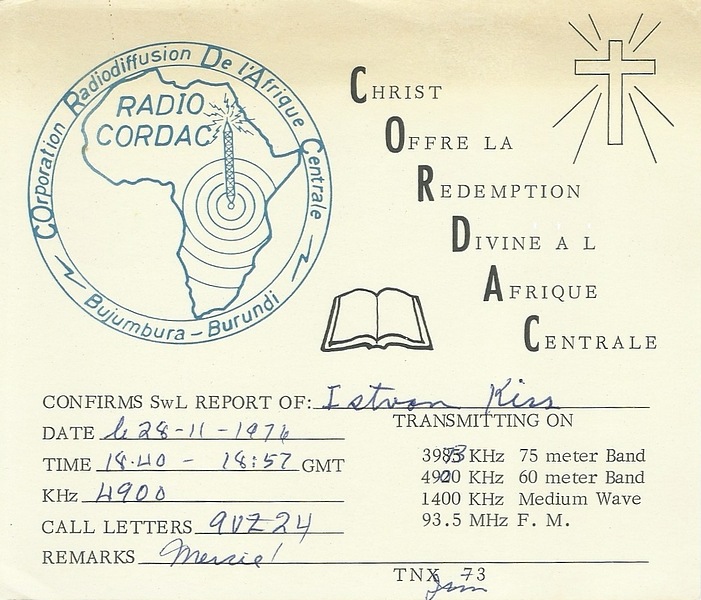 COrporation Radiodiffusion De l'Afrique Centrale
RADIO
CORDAC
Bujumbura - Burundi
CHRIST
OFFRE LA
REDEMPTION
DIVINE A L
AFRIQUE
CENTRALE
CONFIRMS SwL REPORT OF: Istvan Kiss
DATE le 28-11-1976
TIME 18.40 - 18:57 GMT
KHz 4900
CALL LETTERS 9UZ24
REMARKS Mercie!
TRANSMITTING ON
KHz 75 meter Band
4900 KHz 60 meter Band
1400 KHz Medium Wave
93.5 MHz F. M.
TNX 73
Jim